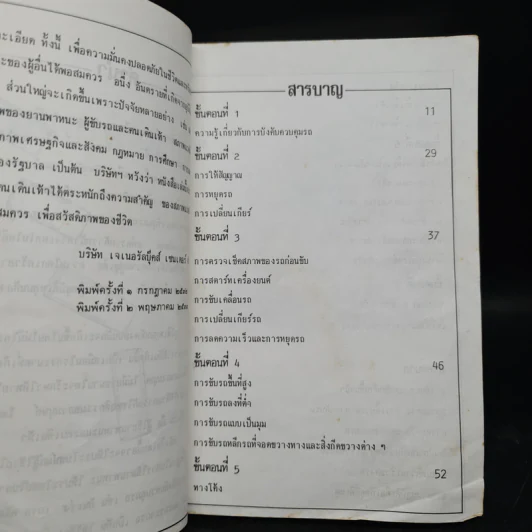 ะเอียด ทั้งนี้ เพื่อความมั่นคงปลอดภัยในชีวิตและ
ะของผู้อื่นได้พอสมควร อนึ่ง อันตรายที่เกิด
ส่วนใหญ่จะเกิดขึ้นเพราะปัจจัยหลายอย่าง เช่น
พของยานพาหนะ ผู้ขับรถและคนเดินเท้า
ภาพเศรษฐกิจและสังคม กฎหมาย การศึกษา
องรัฐบาล เป็นต้น บริษัทฯ หวังว่า หนังสือเล่มนี้
คนเดินเท้าได้ตระหนักถึงความสำคัญ
สมควร เพื่อสวัสดิภาพของชีวิต
บริษัท เจเนอรัลบุ๊คส์ เซนเตอร์
พิมพ์ครั้งที่ ๑ กรกฎาคม
พิมพ์ครั้งที่ ๒ พฤษภาคม
สารบาญ
ขั้นตอนที่ 1 11
ความรู้เกี่ยวกับการบังคับควบคุมรถ
ขั้นตอนที่ 2 29
การให้สัญญาณ
การหยุดรถ
การเปลี่ยนเกียร์
ขั้นตอนที่ 3 37
การตรวจเช็คสภาพของรถก่อนขับ
การสตาร์ทเครื่องยนต์
การขับเคลื่อนรถ
การเปลี่ยนเกียร์รถ
การลดความเร็วและการหยุดรถ
ขั้นตอนที่ 4 46
การขับรถขึ้นที่สูง
การขับรถลงที่ต่ำ
การขับรถแบบเป็นมุม
การขับรถหลีกรถที่จอดขวางทางและสิ่งกีดขวางต่าง ๆ
ขั้นตอนที่ 5 52
ทางโค้ง